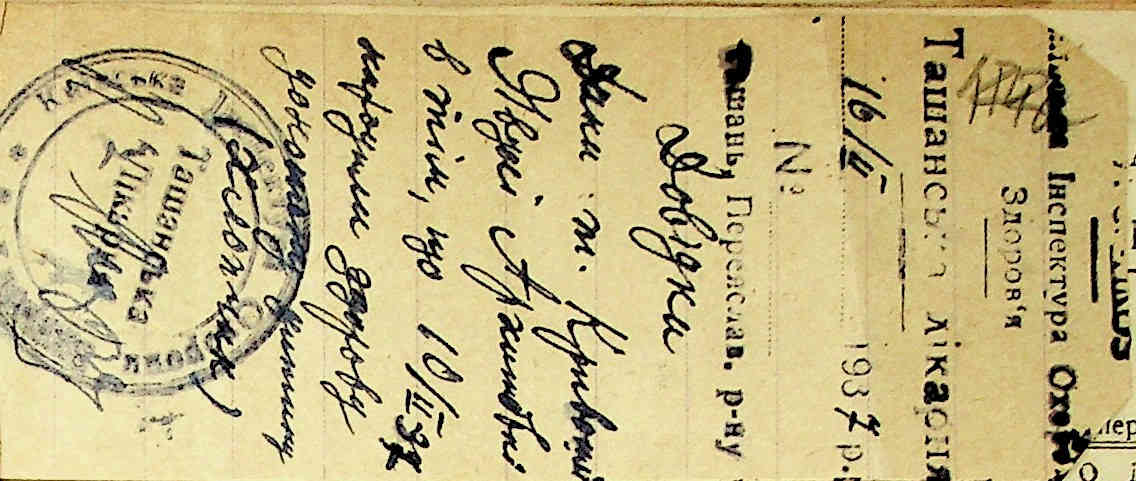 Інспектура Охор
Здоров'я
Ташанська лікарня
16/ІІ 1937 р.
№
Ташань, Переяслав. р-ну
Довідка
Дана т. Кривошій
Явдні Архипівні
в тім, що 10/ІІ 37
народила здорову
доношену дитину
Ташанська
Лікарня